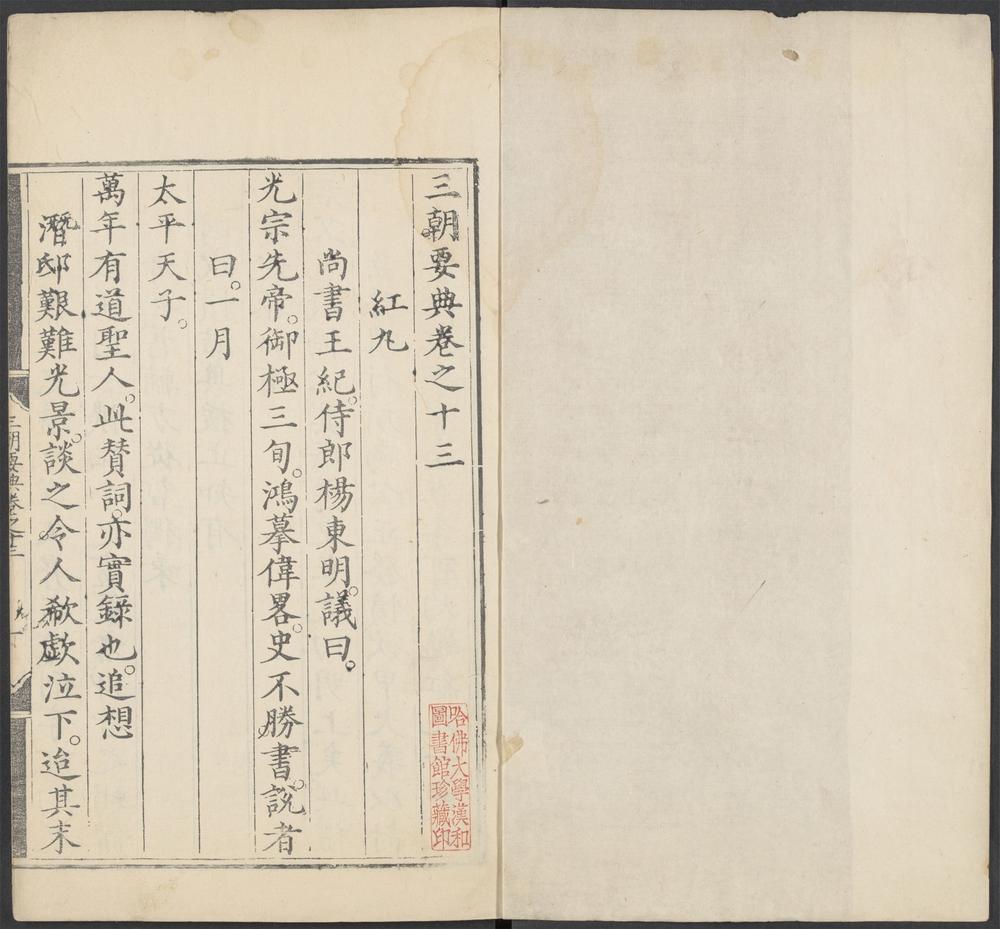 三朝要典卷之十三
紅丸
尚書王紀。侍郎楊東明。議曰。
光宗先帝。御極三旬。鴻摹偉畧。史不勝書。說者
曰。一月
太平天子。
萬年有道聖人。此贊詞。亦實錄也。追想
潛邸艱難光景。談之令人欷歔泣下。迨其末
三朝要典卷之十三
哈佛大學漢和
圖書館珍藏印